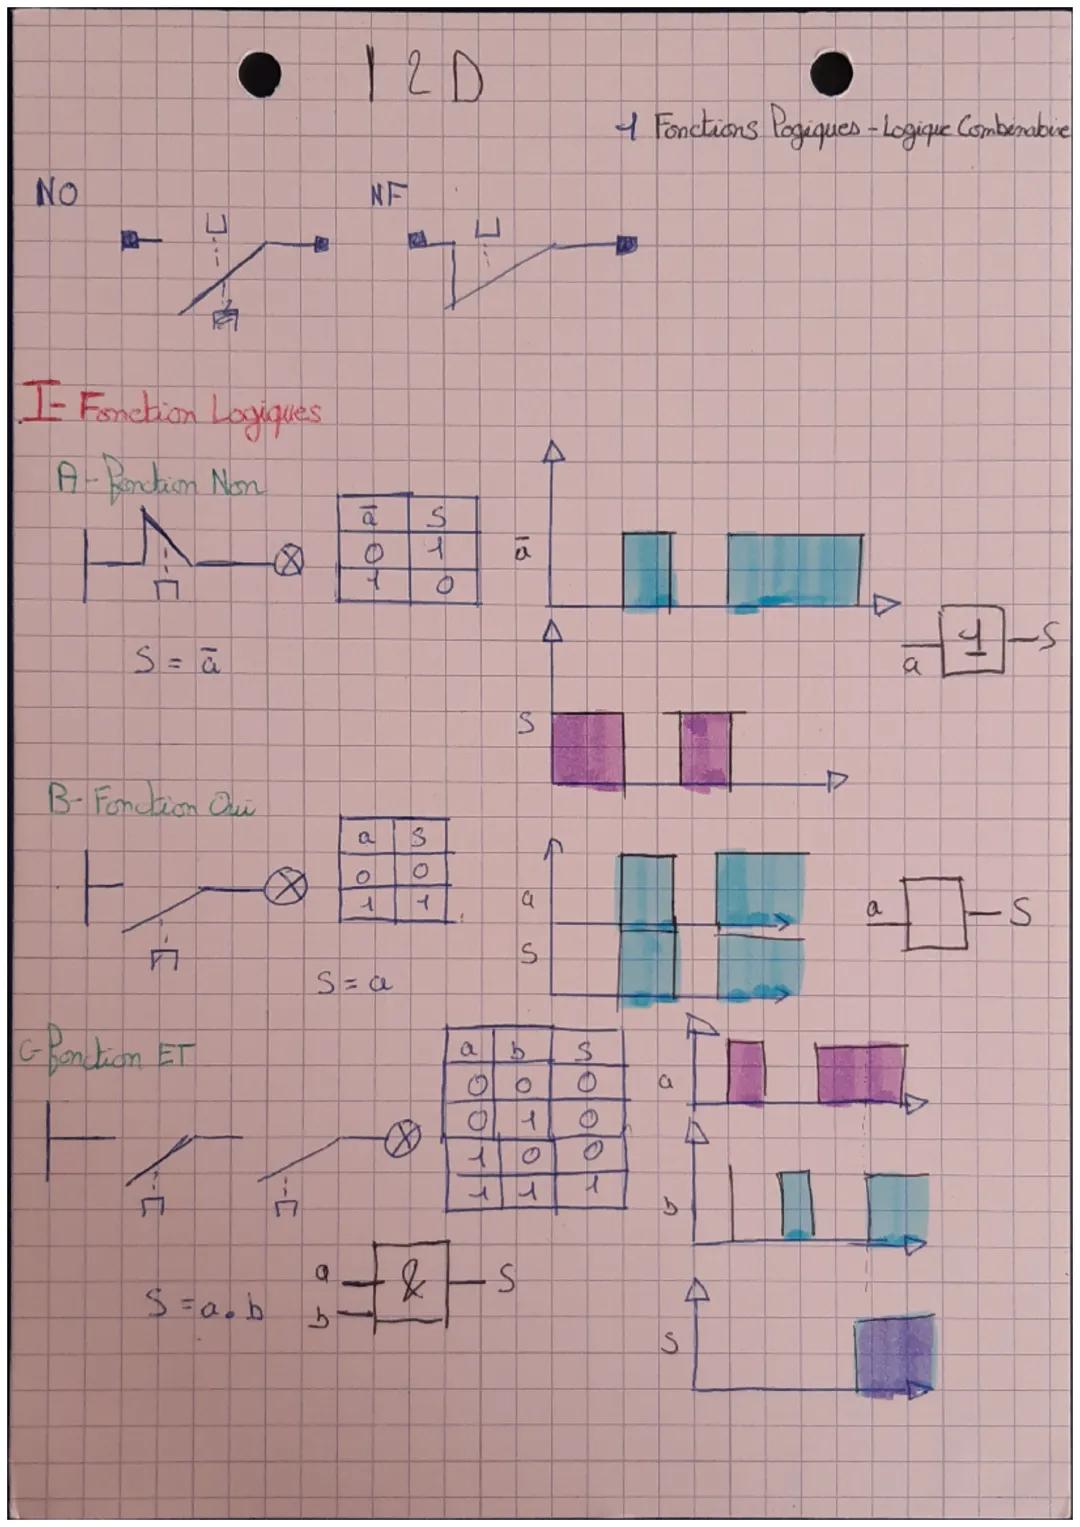 I2D
1 Fonctions Logiques - Logique Combinatoire
NO
NF
I- Fonction Logiques
A- Fonction Non
a̅ S
0 1
1 0
a̅
S = a̅
a̅ 1 S
S
B- Fonction Oui
a S
0 0
1 1
a
S
a S
S = a
C- Fonction ET
a b S
0 0 0
0 1 0
1 0 0
1 1 1
a
b
S = a.b
a & S
b
S